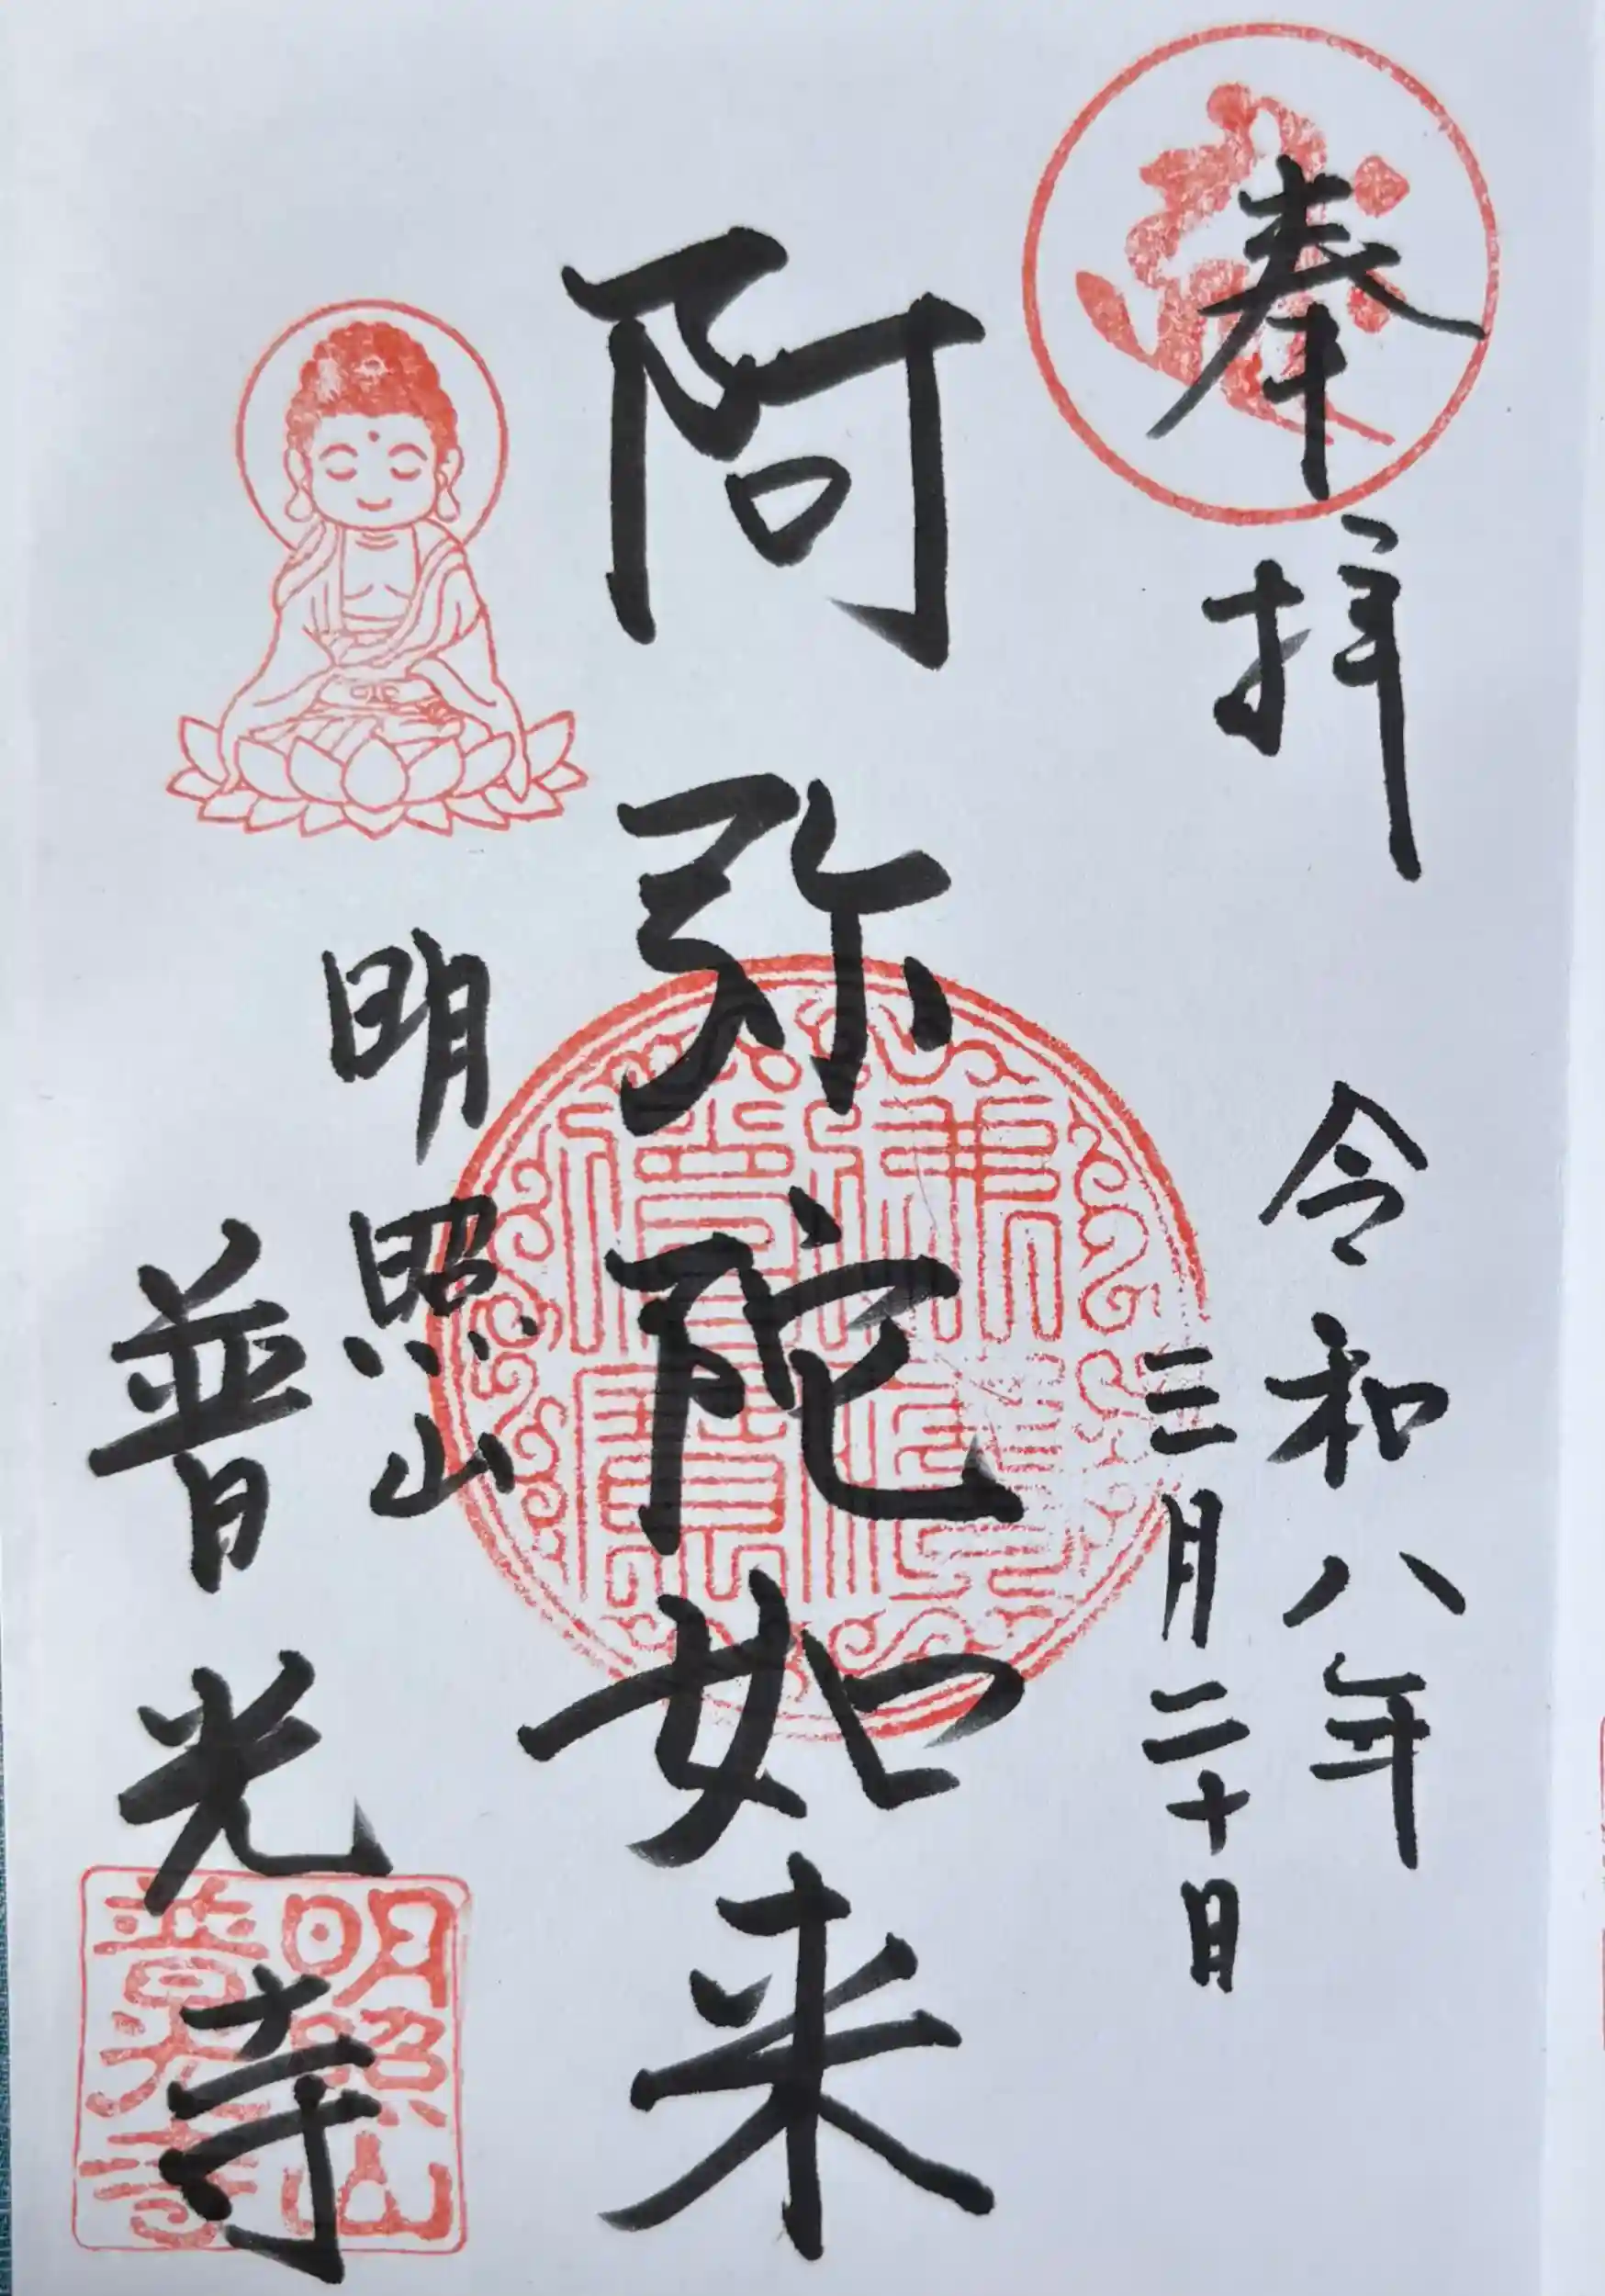 奉拝
令和八年
三月二十日
阿弥陀如来
明照山
普光寺
佛法僧寶
明照山
普光寺